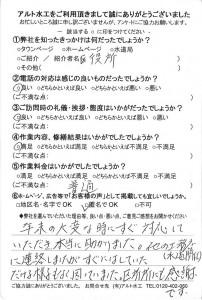 アルト水工をご利用頂きまして誠にありがとうございました
お忙しいところ誠に申し訳ございませんが、アンケートにご協力お願いします。
― 該当する○に印をつけてください ―
①弊社を知ったきっかけは何だったでしょうか?
○タウンページ ○ホームページ ○水道局
○ご紹介 / 紹介者名( 役所 )
○その他(
②電話の対応は感じの良いものだったでしょうか?
○良い ○どちらかといえば良い ○どちらかといえば悪い ○悪い
(ご不満な点: )
③ご訪問時の礼儀・挨拶・態度はいかがだったでしょうか?
○良い ○どちらかといえば良い ○どちらかといえば悪い ○悪い
(ご不満な点: )
④作業内容、修繕結果はいかがでしたでしょうか?
○良い ○どちらかといえば良い ○どちらかといえば悪い ○悪い
(ご不満な点: )
⑤作業料金はいかがでしたでしょうか?
○満足 ○どちらかといえば満足 ○どちらかといえば不満 ○不満
(ご不満な点: 普通 )
⑥ホームページ、広告等で「お客様の声」として掲載しても宜しいでしょうか?
○地区名・名字でOK ○匿名でOK ○不可
●弊社を選んでいただいた理由等、良い点・悪い点、ご意見ご感想をお聞かせください
年末の大変な時にすぐ対応して
いただき本当に助かりました。
に連絡しましたがすぐには
だける様子なく困っていました。区役所にも感謝
です。
ご協力誠にありがとうございました。 お問合せ先 (有)アルト水工 TEL0120-402-080